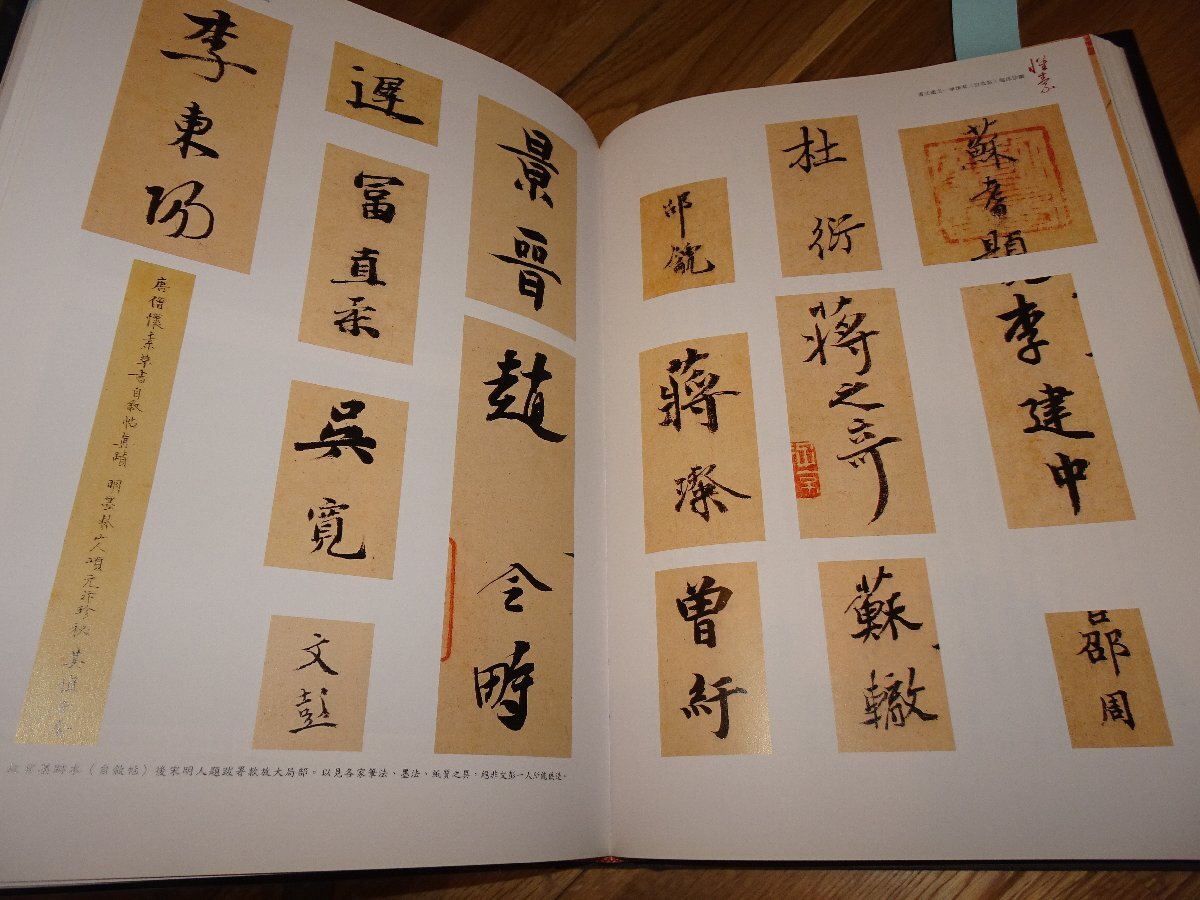 懷素
蘇耆題
李建中
邵周
杜衍
蔣之奇
蘇轍
邵
蔣璨
曾紆
景晉
趙令畤
遲
富直柔
吳寬
文彭
李東陽
唐僧懷素草書自敘帖真蹟 明墨林山人項元汴珍秘 其值
《自敘帖》後宋明人題跋署款放大局部。以見各家筆法、墨法、紙質之異,絕非文彭一人所能